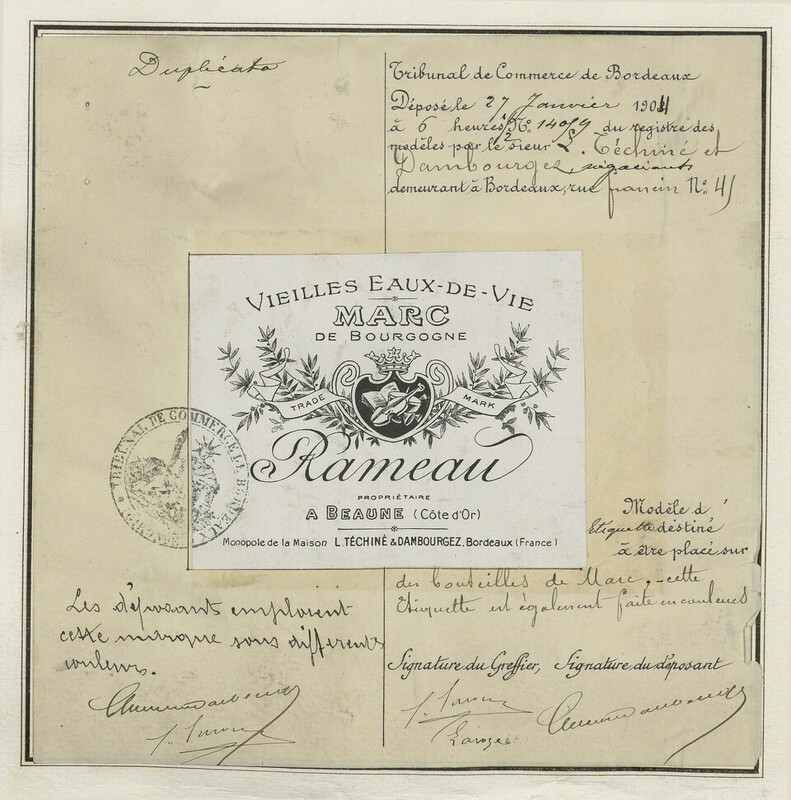 Duplicata
Tribunal de Commerce de Bordeaux
Déposé le 27 Janvier 1904
à 6 heures Nº 14059 du registre des
modèles par le sieur L. Téchiné et
Dambourgez, négociants
demeurant à Bordeaux, rue francin Nº 41
VIEILLES EAUX-DE-VIE
MARC
DE BOURGOGNE
TRADE MARK
Rameau
PROPRIÉTAIRE
A BEAUNE (Côte d'Or)
Monopole de la Maison L. TÉCHINÉ & DAMBOURGEZ, Bordeaux (France)
TRIBUNAL DE COMMERCE DE BORDEAUX
Modèle d'
Etiquette destiné
à être placé sur
des bouteilles de Marc, cette
Etiquette est également faite en couleurs
Les déposants emploient
cette marque sous différentes
couleurs.
Signature du Greffier, Signature du déposant